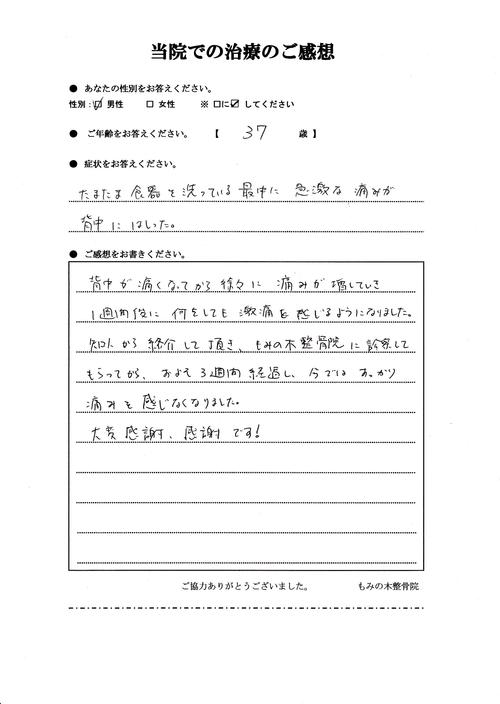 当院での治療のご感想
● あなたの性別をお答えください。
性別：☑ 男性　□ 女性　※ □に☑ してください
● ご年齢をお答えください。　【　37　歳 】
● 症状をお答えください。
たまたま 食器を洗っている 最中に 急激な 痛みが
背中に はしった。
● ご感想をお書きください。
背中が 痛くなってから 徐々に 痛みが 増していき
1週間後に 何をしても 激痛を 感じるようになりました。
知人から 紹介して頂き、もみの木整骨院に 診察して
もらってから、およそ 3週間 経過し、今では すっかり
痛みを 感じなくなりました。
大変 感謝、感謝です!
ご協力ありがとうございました。　もみの木整骨院